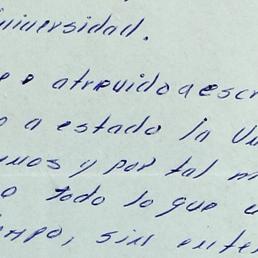 universidad.
e atrevido a escr
o a estado la Un
mos y por tal m
o todo lo que u
mpo, sin enter